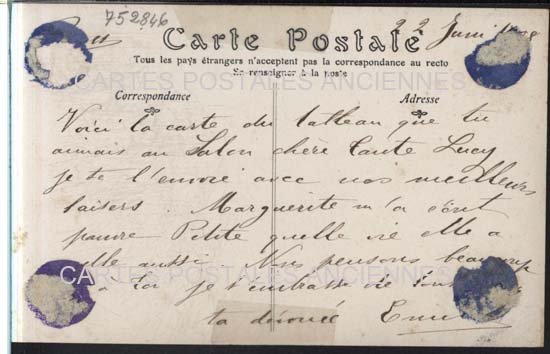 752846
22 Juin
Carte Postale
Tous les pays étrangers n'acceptent pas la correspondance au recto
Se renseigner à la poste
Correspondance
Adresse
CARTES POSTALES ANCIENNES
Voici la carte du tableau que tu
aimais au Salon chère tante Lucy
je te l'envoie avec nos meilleurs
baisers. Marguerite m'a écrit
pauvre Petite quelle vie elle a
elle aussi. Nous pensons beaucoup
à toi je t'embrasse
CARTES POSTALES ANCIENNES
ta dévouée